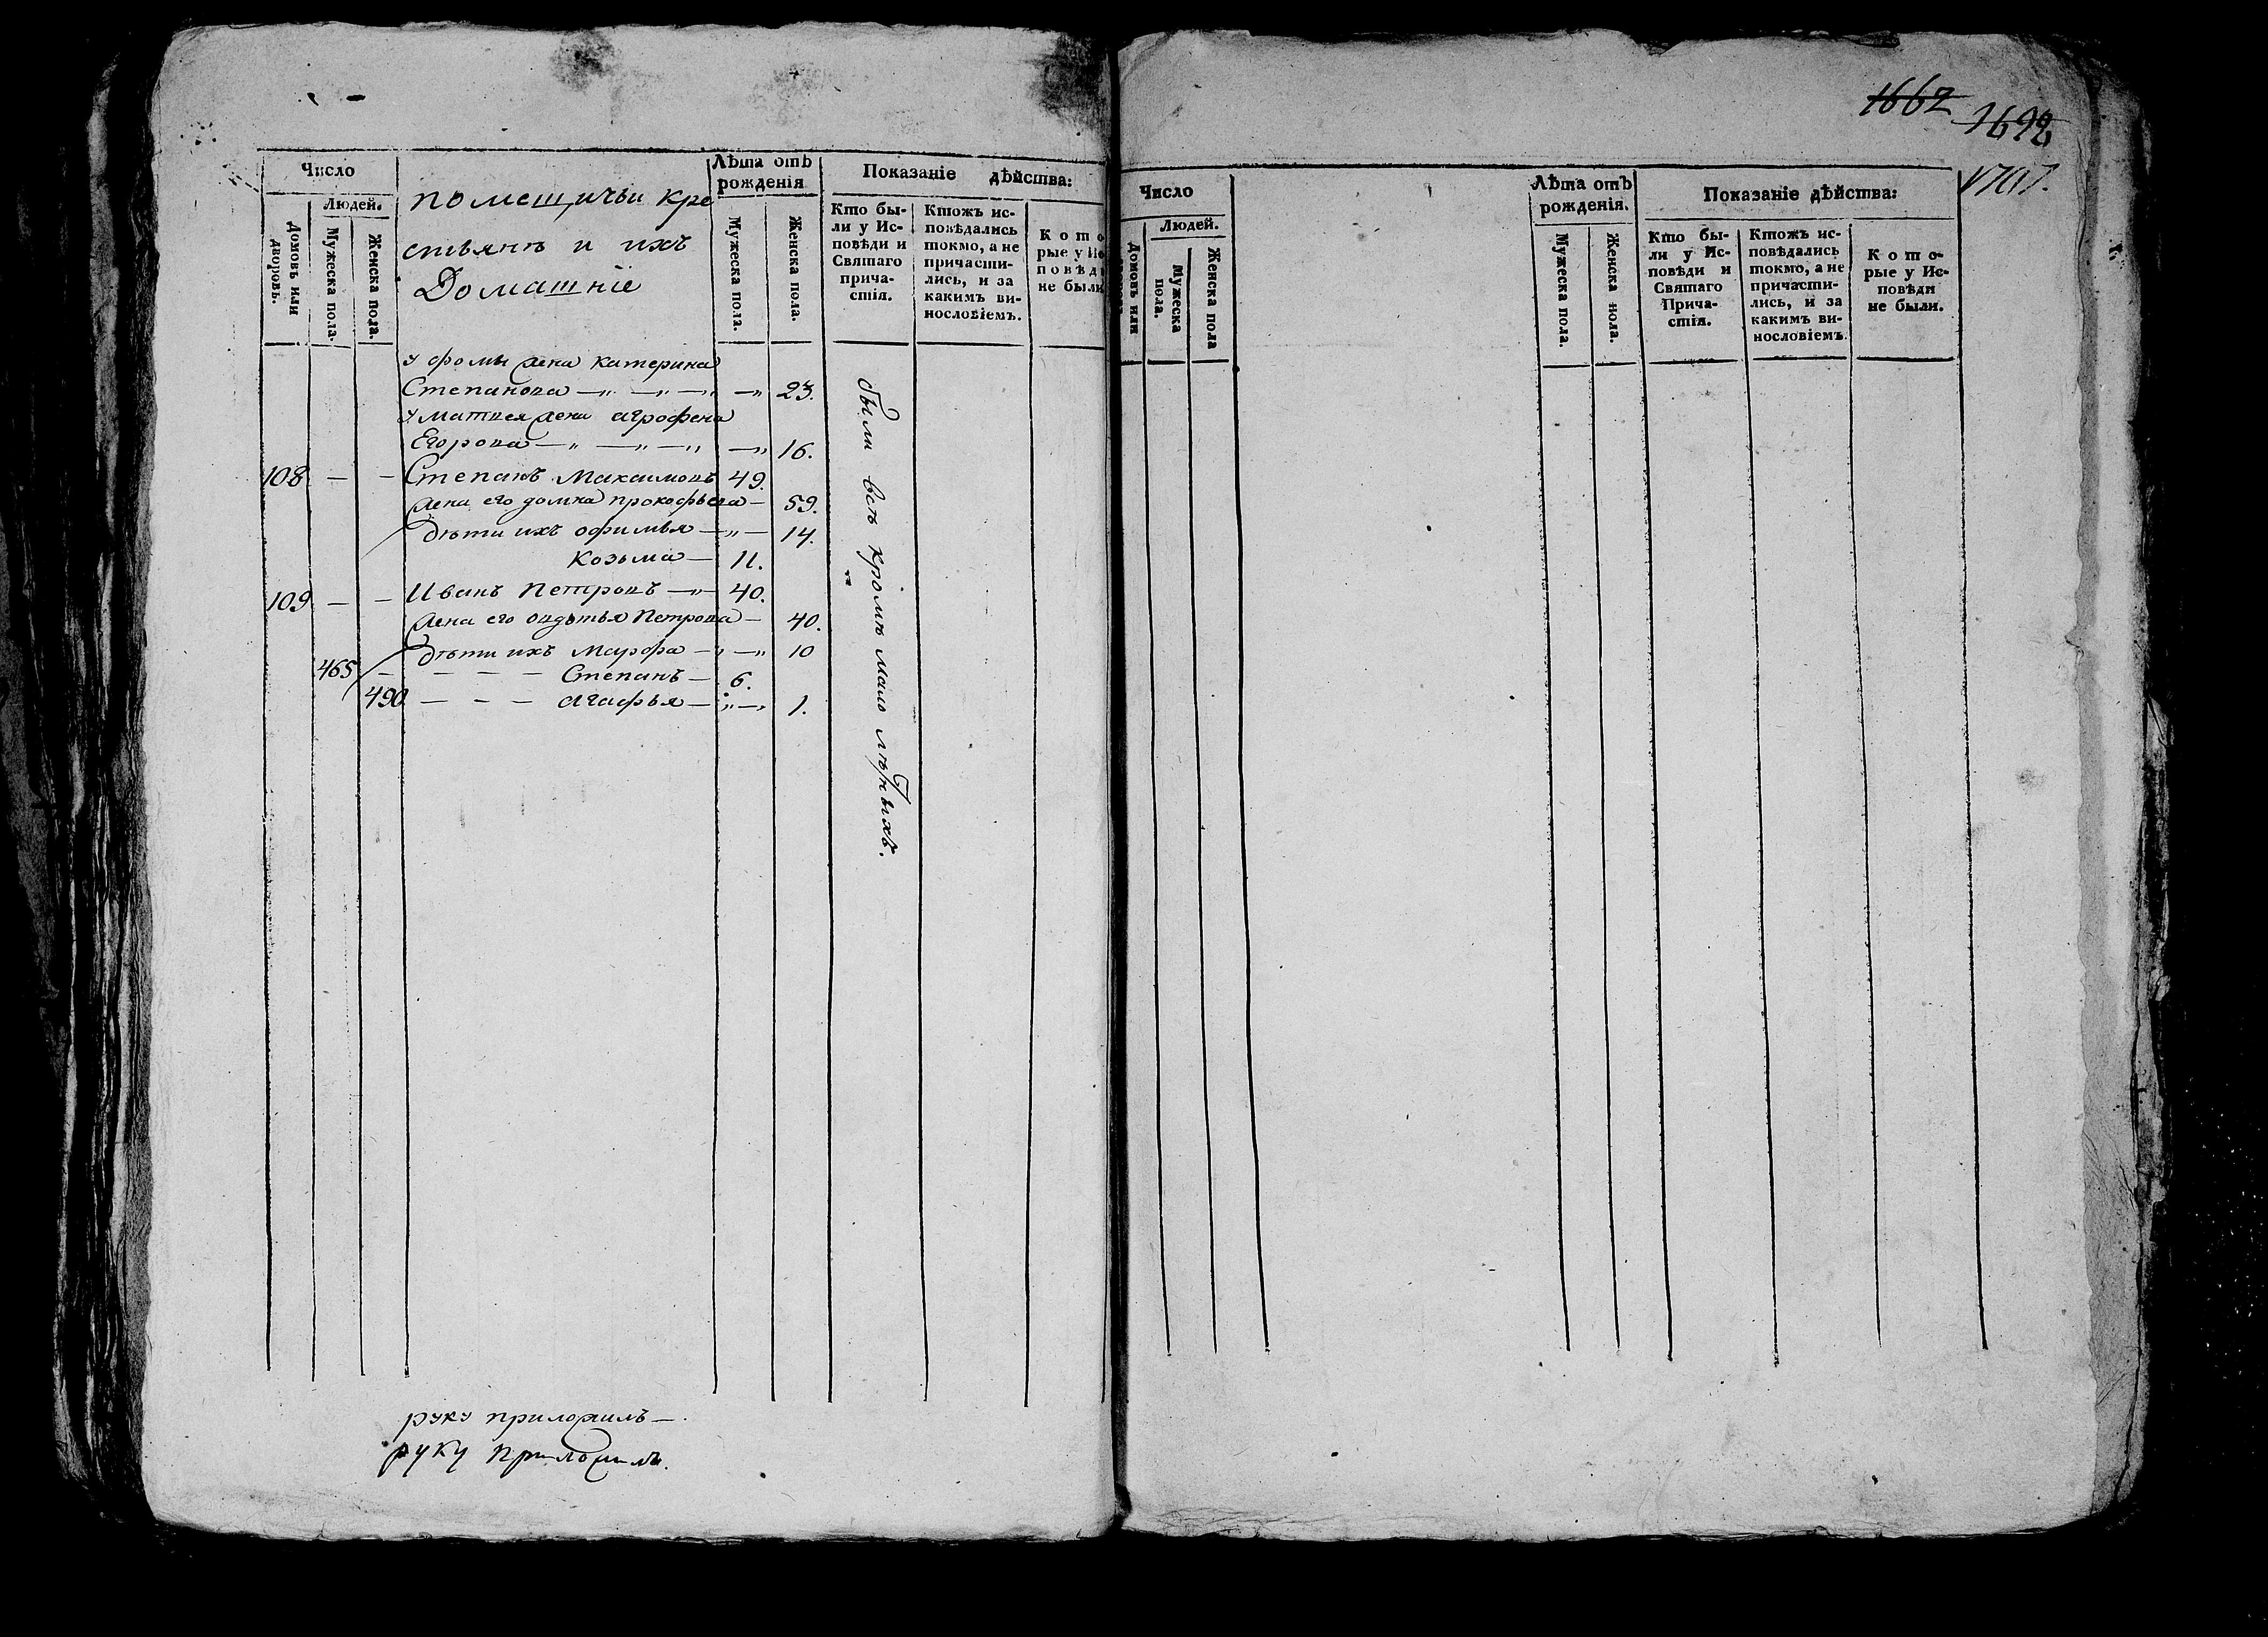 Число
Людей.
Домовъ или дворовъ.
Мужеска пола.
Женска пола.
помещичьи кре
стьянѣ и ихъ
Домашніе
Лѣта отъ рожденія
Мужеска пола.
Женска пола.
Показаніе дѣйства:
Кто бы-
ли у Ис-
повѣди и
Святаго
прича-
стія.
Ктожъ ис-
повѣдались
токмо, а не
причасти-
лись, и за
какимъ ви-
нословіемъ.
Кото
рые у Ис
повѣд
не были
У фомы жена Катерина
Степанова — „ — „ — „ — „ 23.
У матвея жена агрофена
Егорова — „ — „ — „ — „ 16.
108 — — Степанъ Максимовъ 49.
жена его домна прокофьева — 59.
дѣти ихъ офимья — „ — 14.
Козьма — 11.
109 — — Иванъ Петровъ — „ — 40.
жена его овдотья Петрова — 40.
дѣти ихъ Марфа — „ — „ 10
465 — — — — Степанъ — 6.
490 — — — агафья — „ — „ 1.
были всѣ кромѣ мало лѣтныхъ.
руку приложилъ —.
руку приложилъ.
1662
1692
1707.
Число
Людей.
Домовъ или
Мужеска пола.
Женска пола
Лѣта отъ рожденія.
Мужеска пола.
Женска пола.
Показаніе дѣйства:
Кто бы-
ли у Ис-
повѣди и
Святаго
Прича-
стія.
Ктожъ ис-
повѣдались
токмо, а не
причасти-
лись, и за
какимъ ви-
нословіемъ.
Кото-
рые у Ис-
повѣди
не были.